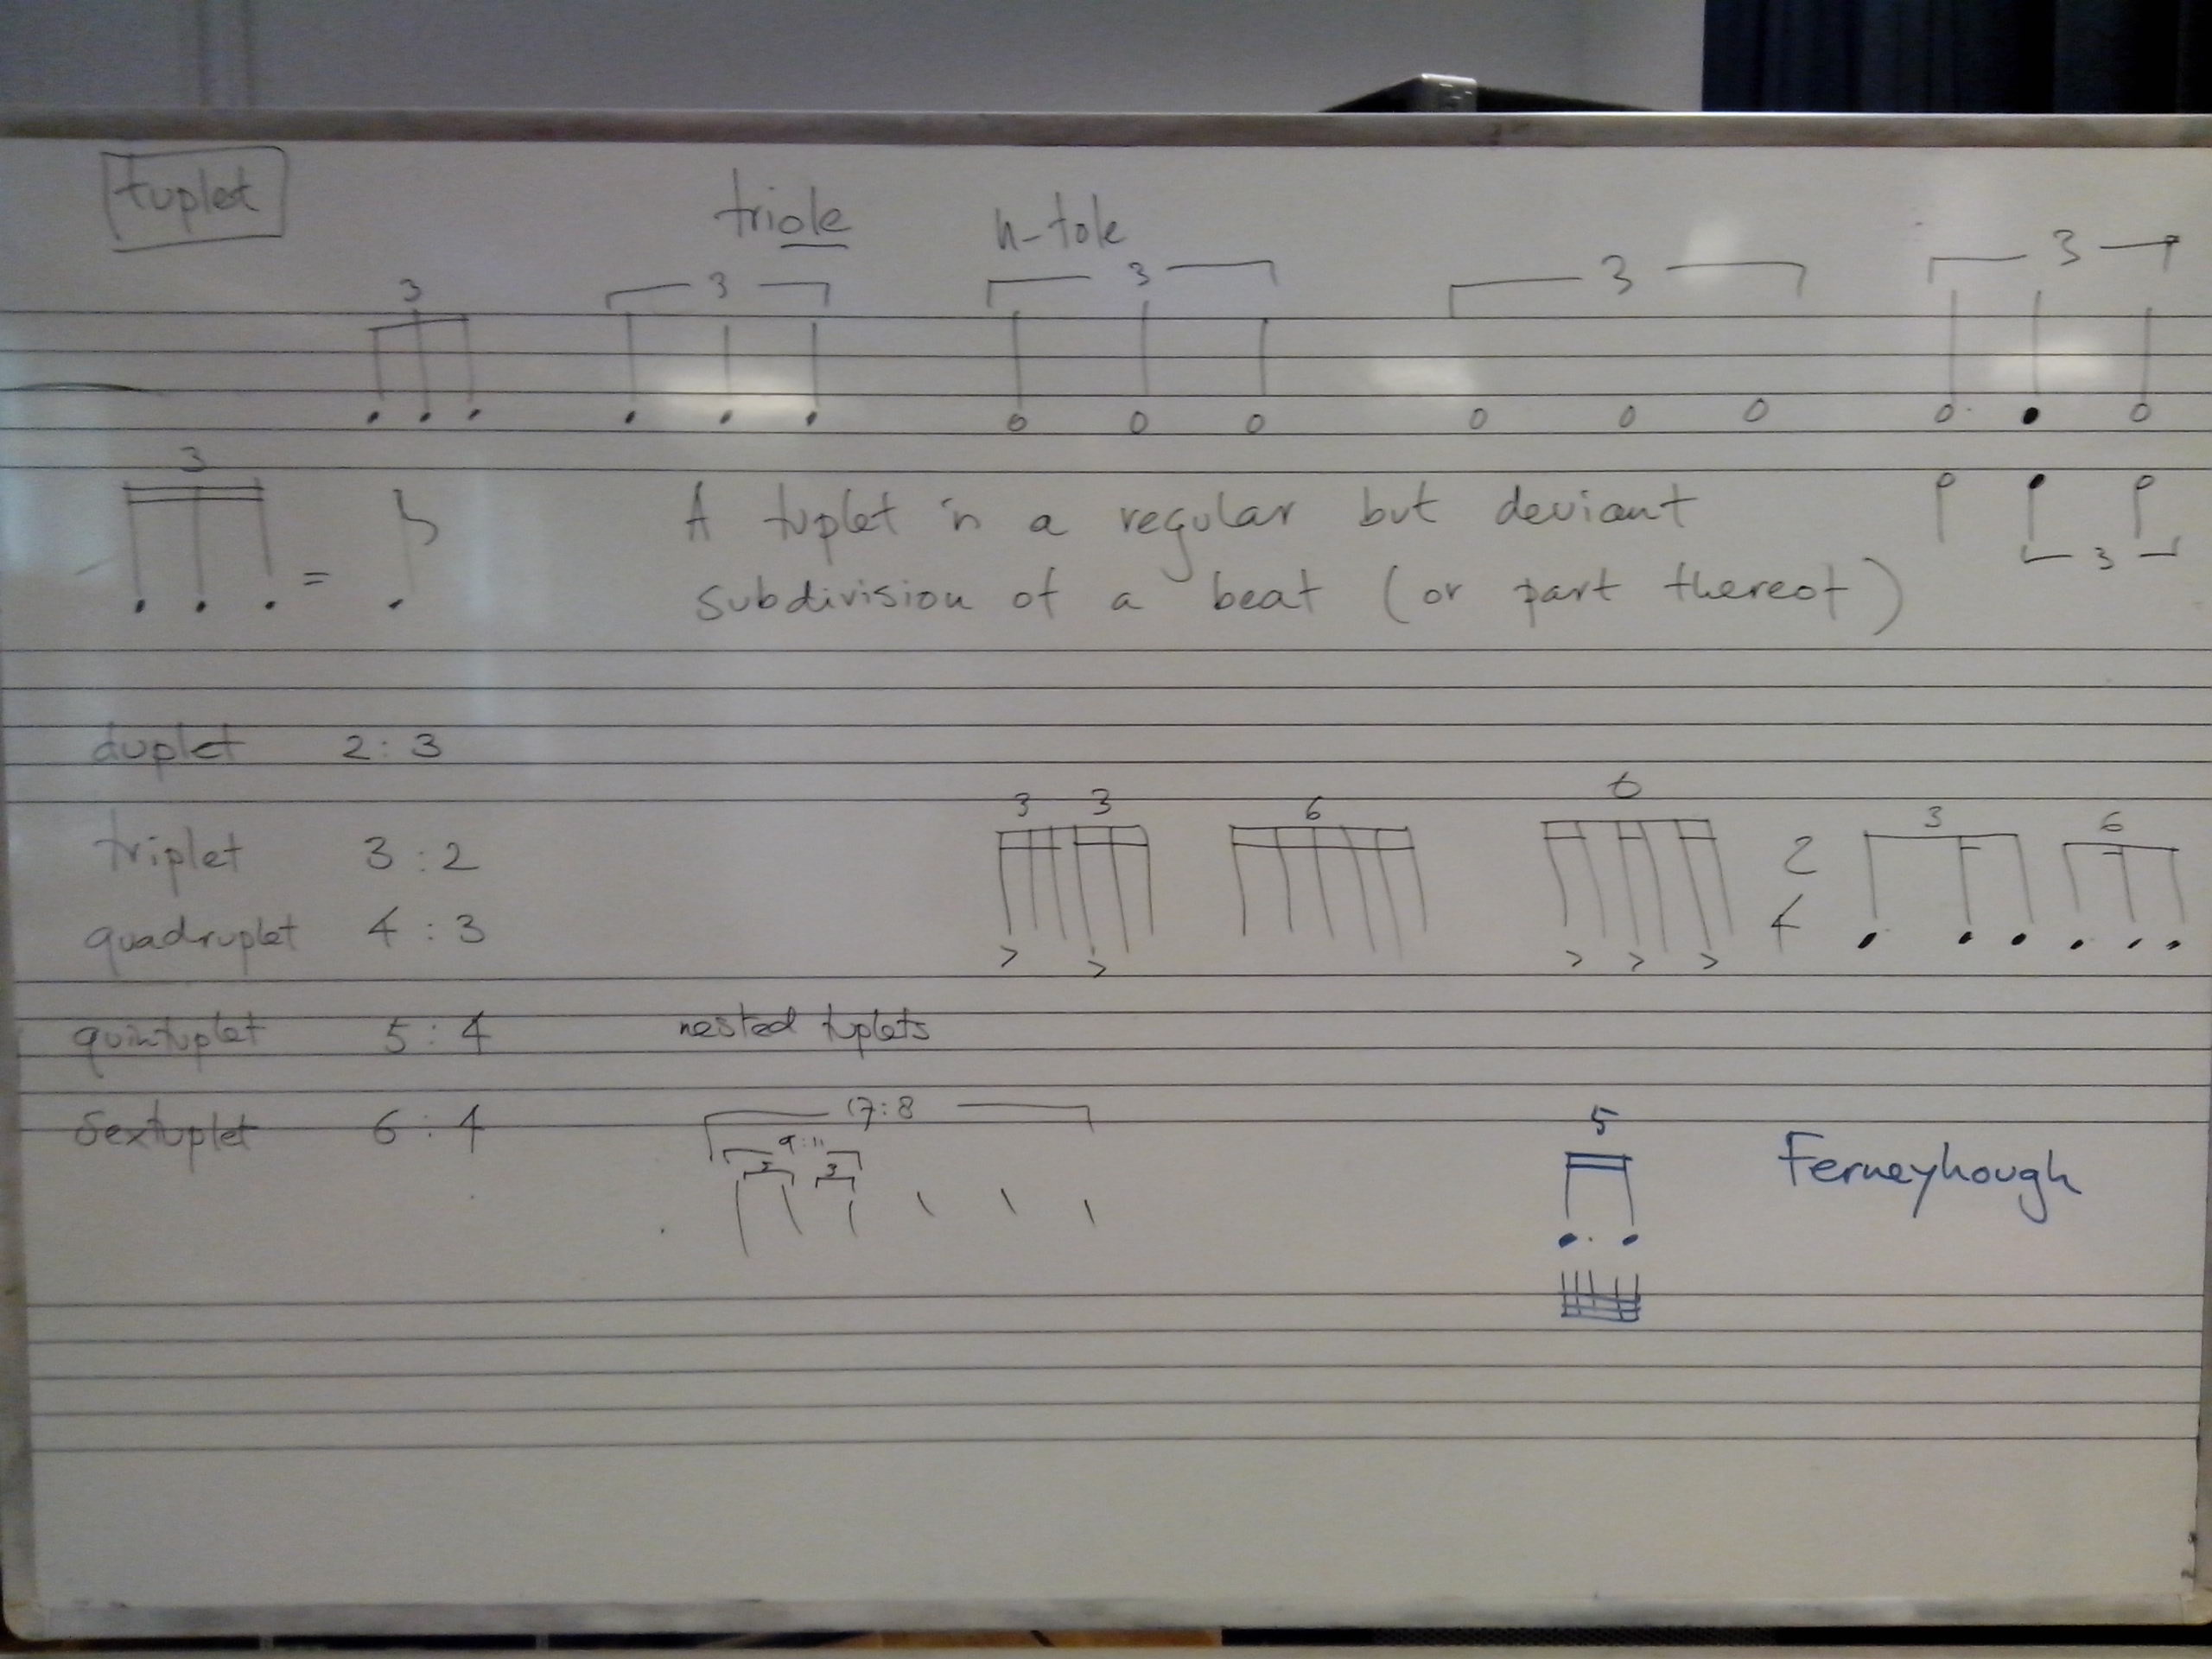 tuplet
triole n-tole
3 3 3 3 3
3
=
A tuplet is a regular but deviant
subdivision of a beat (or part thereof)
3
duplet 2:3
3 3 6 6 3 6
triplet 3:2
2
4
quadruplet 4:3
quintuplet 5:4 nested tuplets
sextuplet 6:4
17:8
9:11
3
5
Ferneyhough